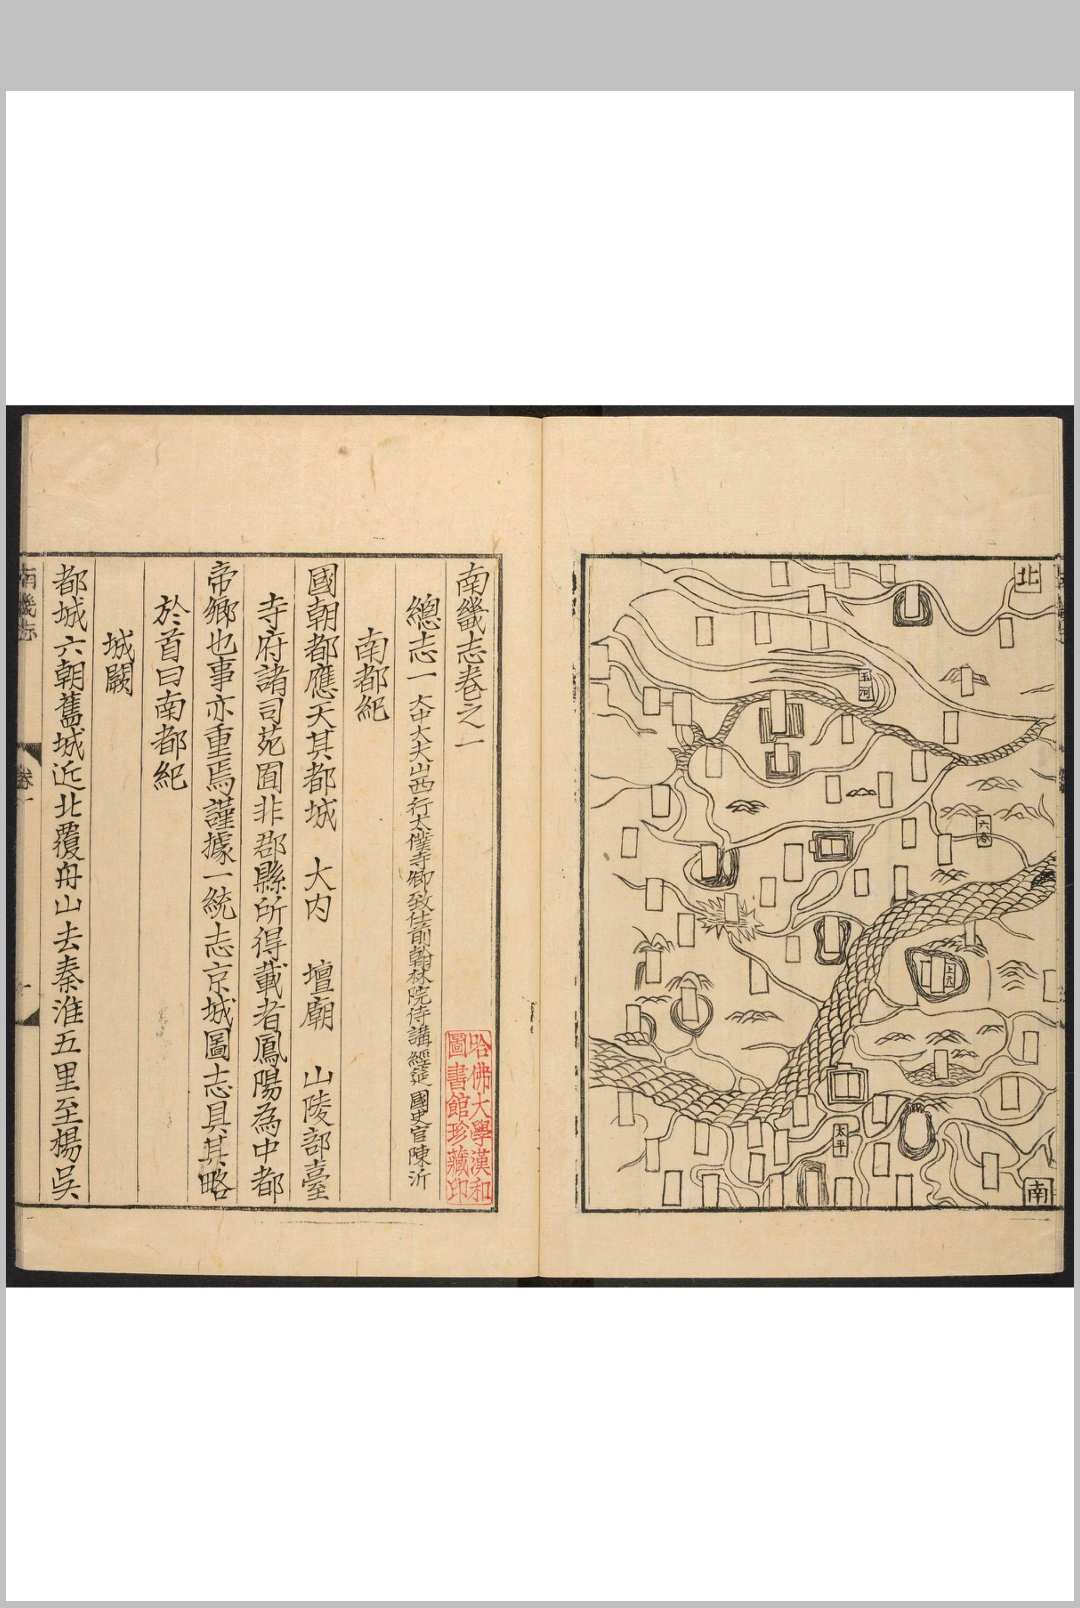 北
五河
六合
上元
太平
南
南畿志卷之一
總志一 大中大夫山西行太僕寺卿致仕前翰林院侍講經筵國史官陳沂
南都紀
國朝都應天其都城 大内 壇廟 山陵部臺
寺府諸司苑囿非郡縣所得載者鳳陽為中都
帝鄉也事亦重焉謹據一統志京城圖志具其略
於首曰南都紀
城闕
都城六朝舊城近北覆舟山去秦淮五里至楊吳
南畿志
卷一
哈佛大學漢和
圖書館珍藏印